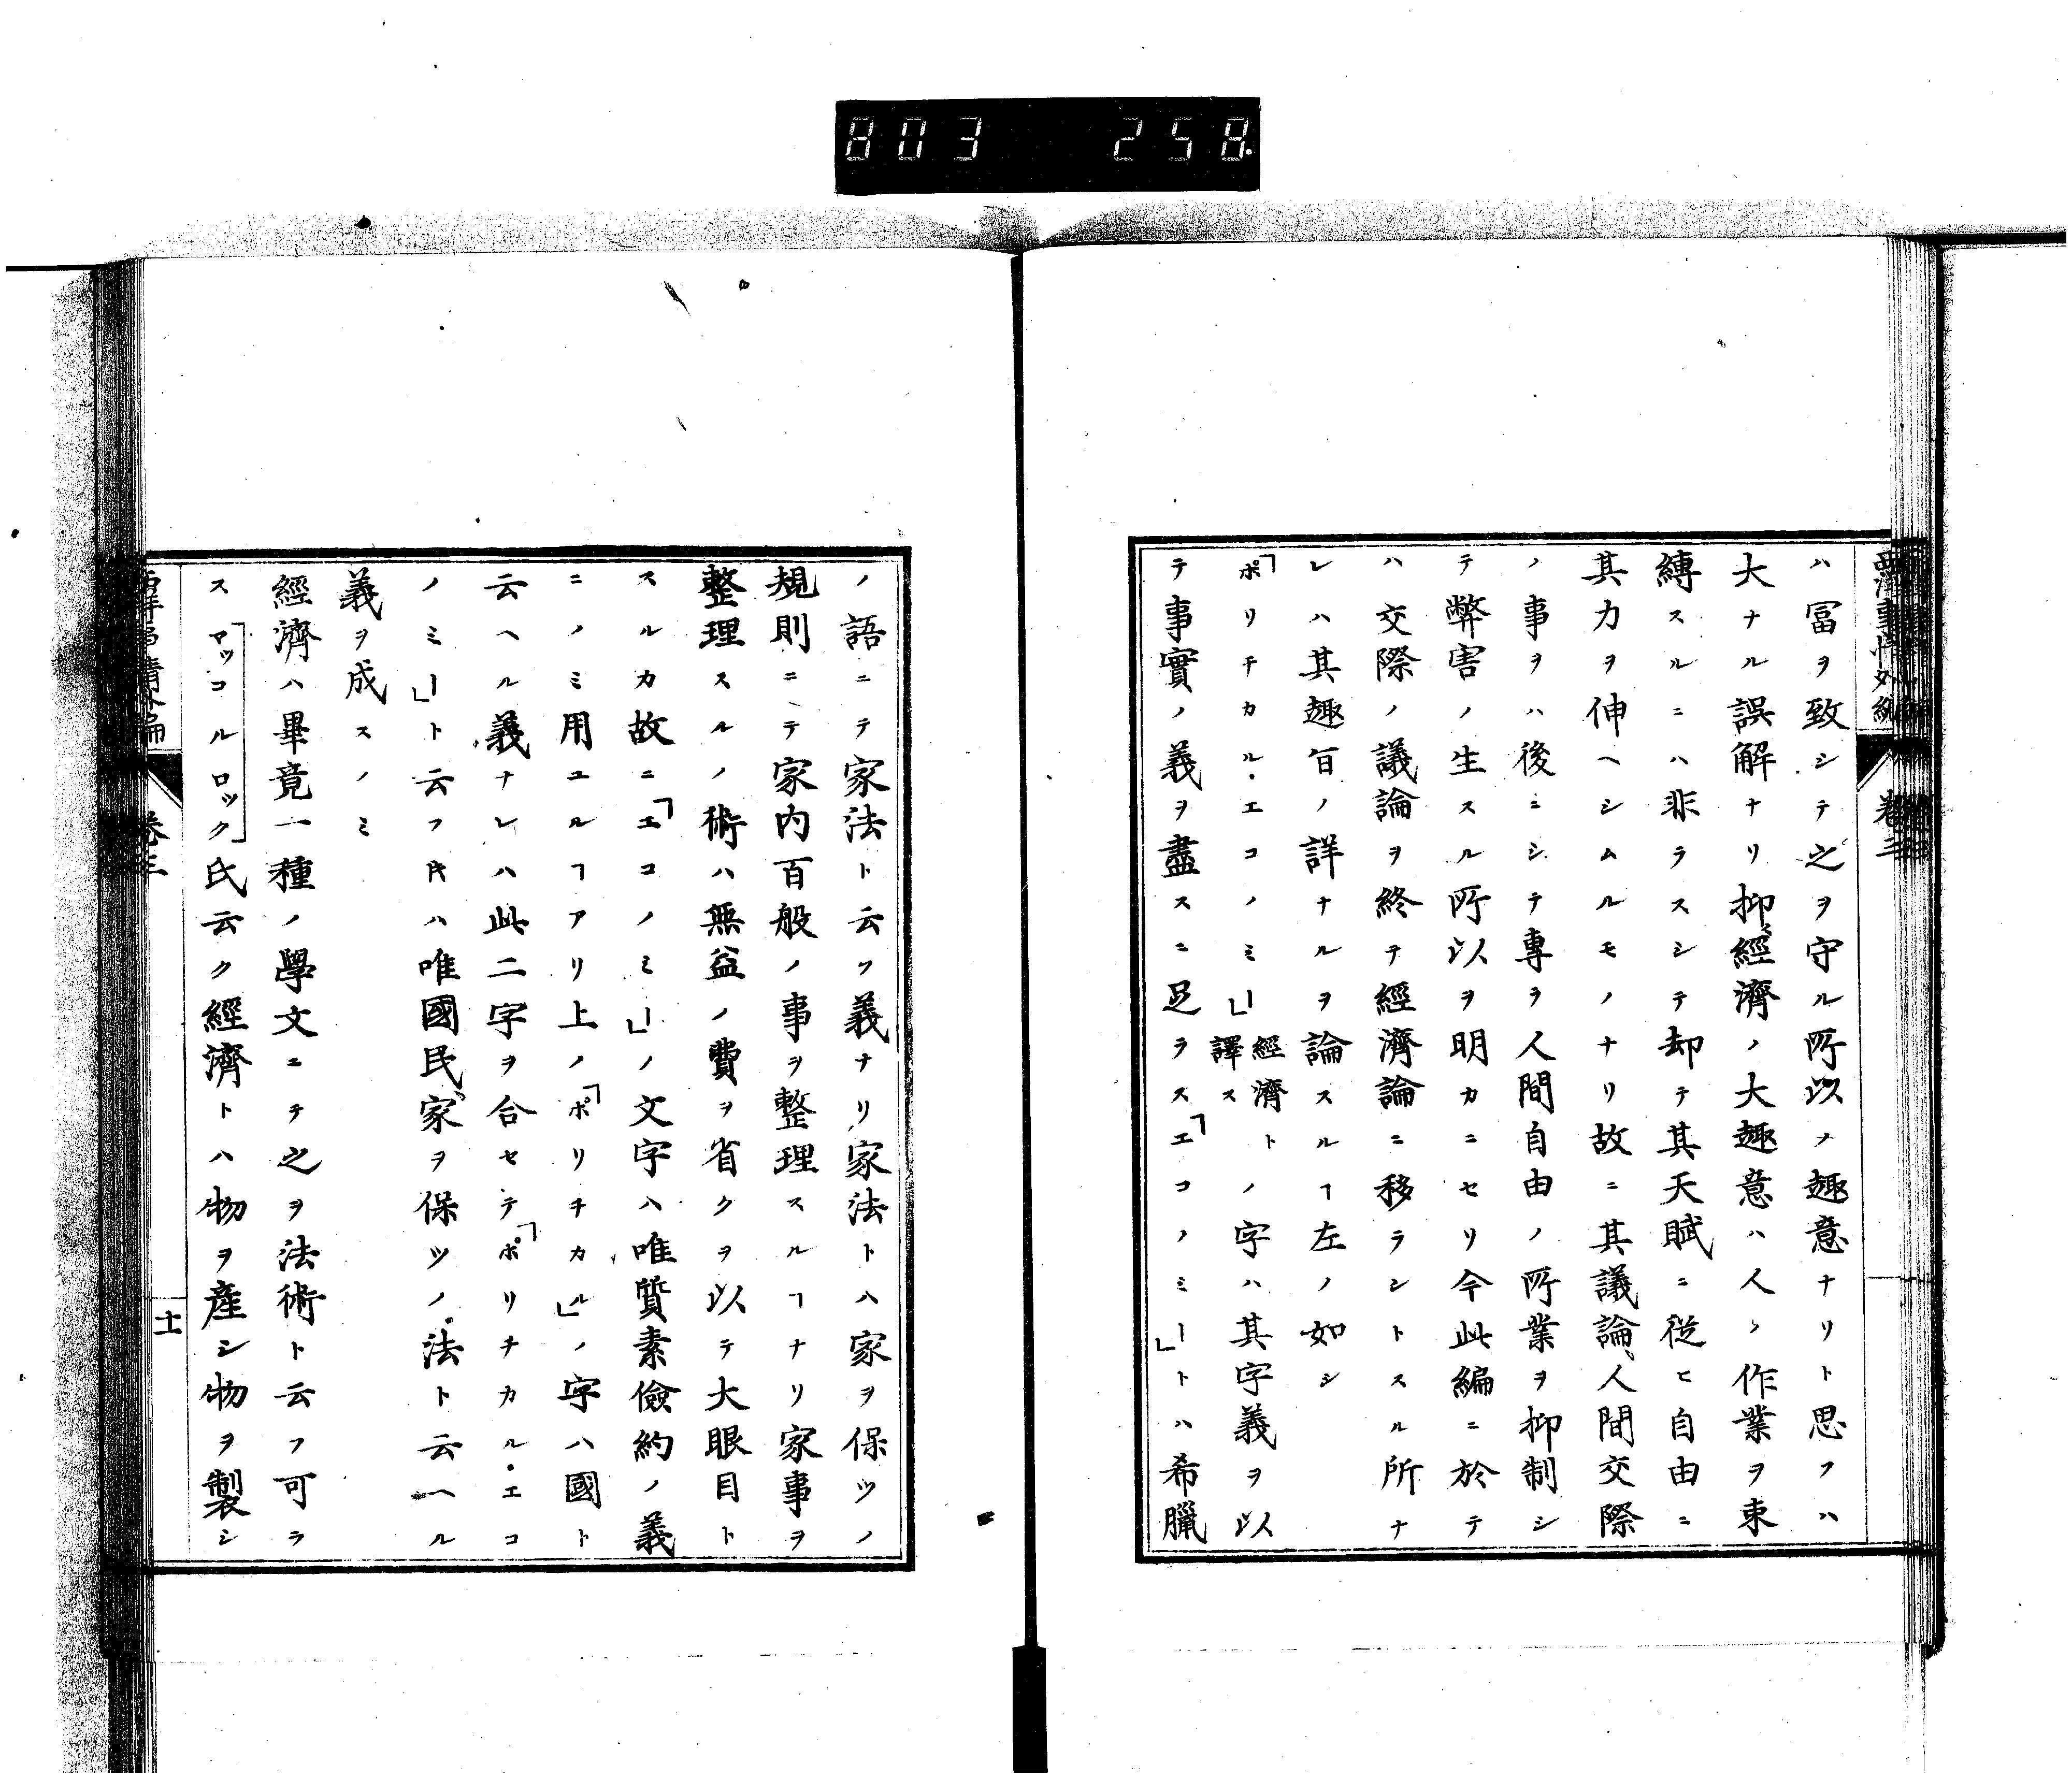 803 258
西洋事情外編
卷三
ハ冨ヲ致シテ之ヲ守ル所以ノ趣意ナリト思フハ
大ナル誤解ナリ抑〻經濟ノ大趣意ハ人〻ノ作業ヲ束
縛スルニハ非ラスシテ却テ其天賦ニ從ヒ自由ニ
其力ヲ伸ヘシムルモノナリ故ニ其議論、人間交際
ノ事ヲハ後ニシテ專ラ人間自由ノ所業ヲ抑制シ
テ弊害ノ生スル所以ヲ明カニセリ今此編ニ於テ
ハ交際ノ議論ヲ終テ經濟論ニ移ラントスル所ナ
レハ其趣旨ノ詳ナルヲ論スルヿ左ノ如シ
「ポリチカル・エコノミー」經濟ト譯スノ字ハ其字義ヲ以
テ事實ノ義ヲ盡スニ足ラス「エコノミー」トハ希臘
ノ語ニテ家法ト云フ義ナリ家法トハ家ヲ保ツノ
規則ニテ家內百般ノ事ヲ整理スルヿナリ家事ヲ
整理スルノ術ハ無益ノ費ヲ省クヲ以テ大眼目ト
スルカ故ニ「エコノミー」ノ文字ハ唯質素儉約ノ義
ニノミ用ユルヿアリ上ノ「ポリチカル」ノ字ハ國ト
云ヘル義ナレハ此二字ヲ合セテ「ポリチカル・エコ
ノミー」ト云フ𪜈ハ唯國民、家ヲ保ツノ法ト云ヘル
義ヲ成スノミ
經濟ハ畢竟一種ノ學文ニテ之ヲ法術ト云フ可ラ
スマッコルロック氏云ク經濟トハ物ヲ產シ物ヲ製シ
西洋事情外編
卷三
十一